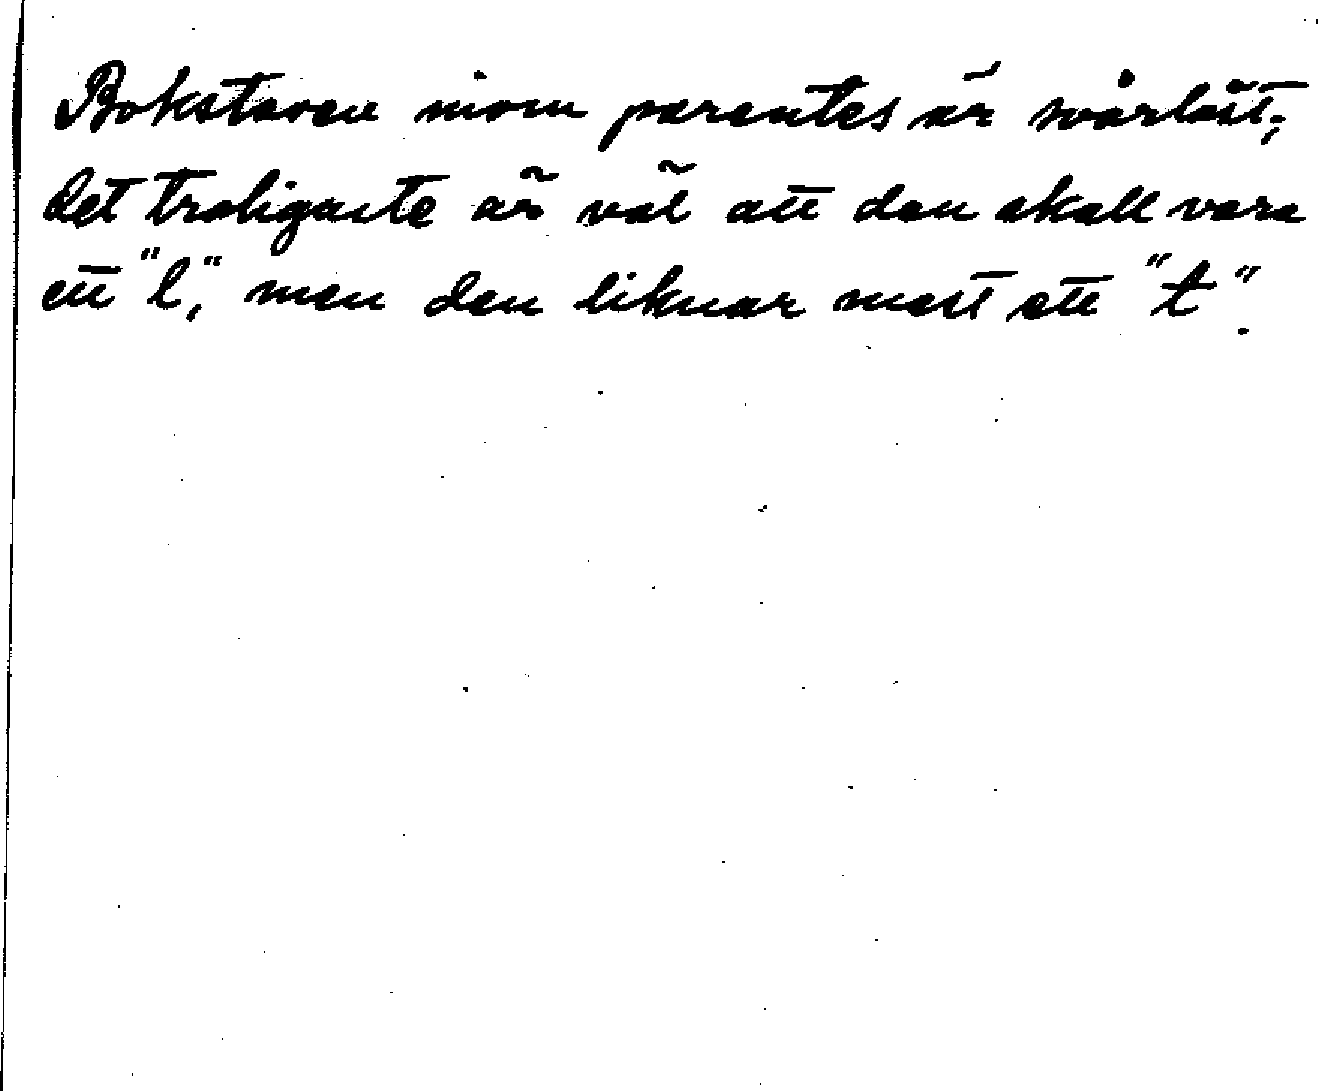 Bokstaven inom parentes är svårläst;
det troligaste är väl att den skall vara
ett "l", men den liknar mest ett "t".